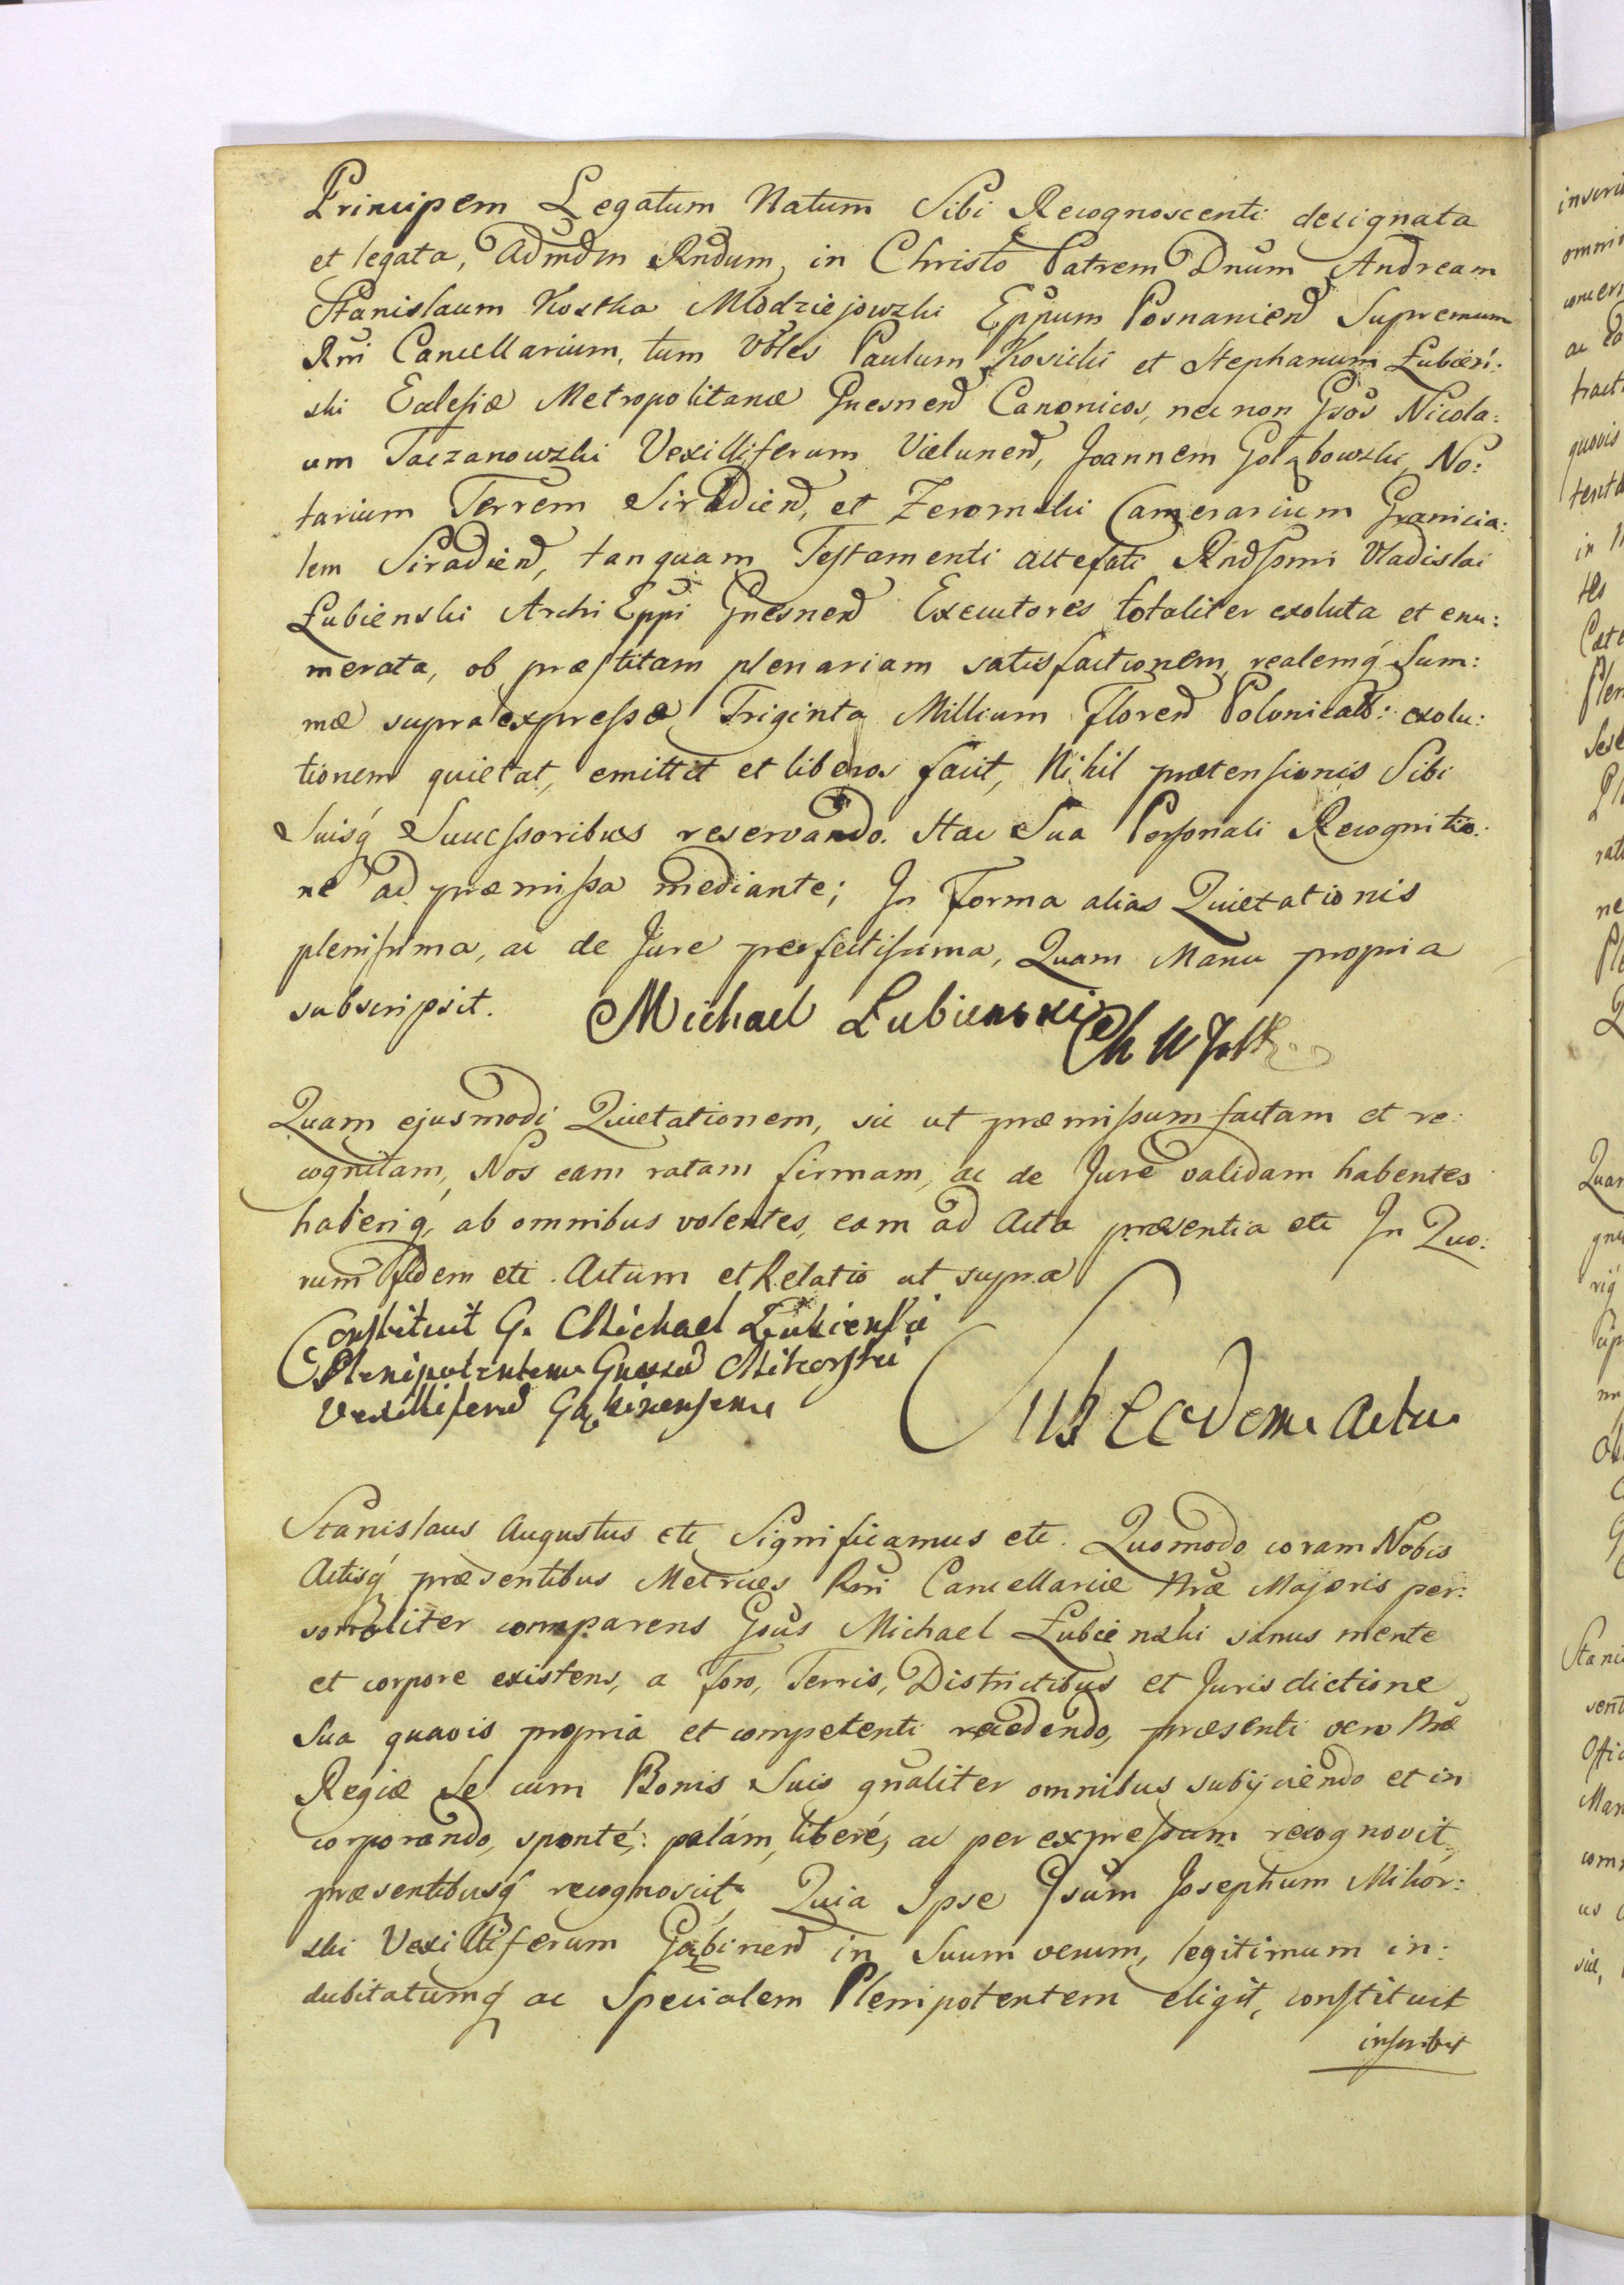 Principem Legatum Natum Sibi Recognoscenti designata
et legata, Admdm Rndum in Christo Patrem Dnum Andream
Stanislaum Kostka Młodziejowski Eppum Posnaniend Supremum
Rni Cancellarium, tum Vbles Paulum Kosicki et Stephanum Łubień:
ski Eclesiæ Metropolitanæ Gnesnend Canonicos, nec non Gsos Nicola:
um Taczanowski Vexilliferum Vielunend, Joannem Gołąbowski, No:
tarium Terrem Siradiend, et Zeromski Camerarium Granicia:
lem Siradiend, tanquam Testamenti attefati Rndssmi Vladislai
Łubienski Archi Eppi Gnesnend Executores totaliter exoluta et enu:
merata, ob præstitam plenariam satisfactionem, realemq́ Sum:
mæ supra expressæ Triginta Millium Florend Polonicalb: exolu:
tionem quietat, emittit et liberos facit, Nihil prætensionis Sibi
Suisq́ Successoribus reservando. Hac Sua Personali Recognitio:
ne ad præmissa mediante; In Forma alias Quietationis
plenissima, ac de Jure perfectissima, Quam Manu propria
subscripsit. Michael Łubienski
Quam ejusmodi Quietationem, sic ut præmissum factam et re:
cognitam, Nos eam ratam firmam, ac de Jure validam habentes
haberiq́, ab omnibus volentes, eam ad Acta præsentia etc In Quo:
rum fidem etc. Actum et Relatio ut supra
Constituit G. Michael Łubienski
Plenipotentem Gnosum Mikorski
Vexilliferd Gąbinensem
Sub Eodem Actu
Stanislaus Augustus etc Significamus etc. Quomodo coram Nobis
Actisq́ præsentibus Metrices Rni Cancellariæ Nræ Majoris per:
sonaliter comparens Gsus Michael Łubienski sanus mente
et corpore existens, a Foro, Terris, Districtibus et Jurisdictione
Sua quavis propria et competenti recedendo, præsenti vero Nræ
Regiæ Se cum Bonis Suis gnaliter omnibus subijciendo et in
corporando, sponté, palám, liberé, ac per expressum recognovit,
præsentibusq́ recognoscit, Quia Ipse Gsum Josephum Mikór:
ski Vexilliferum Gąbinend in Suum verum, legitimum in:
dubitatumq́ ac Specialem Plenipotentem eligit, constituit
inscribit